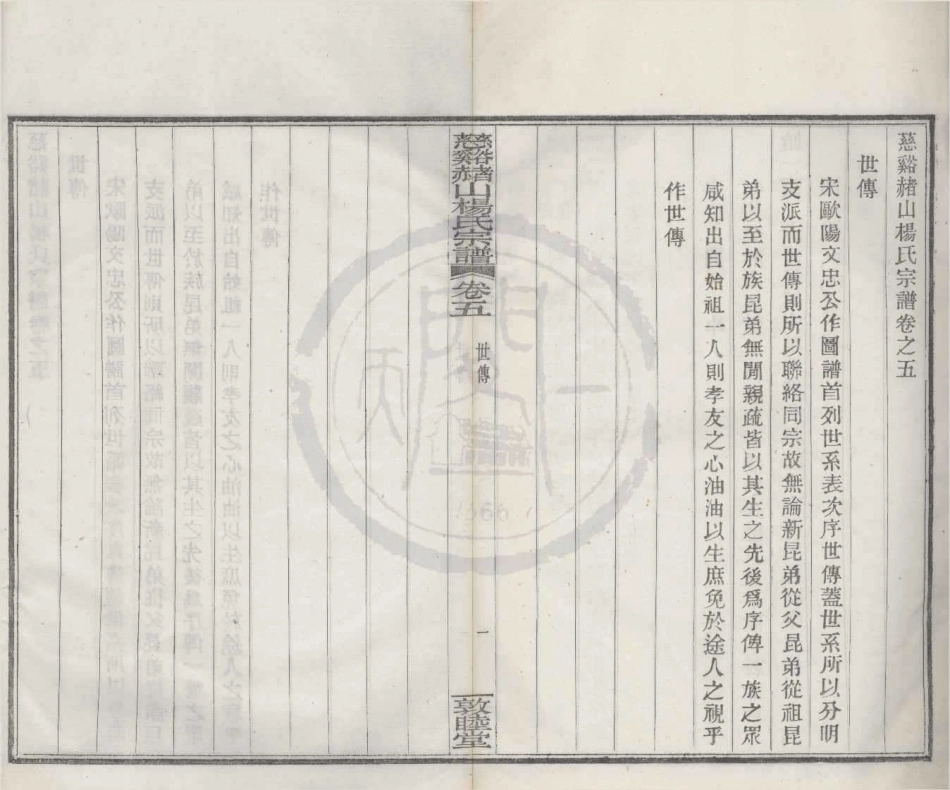 慈谿赭山楊氏宗譜卷之五
世傳
宋歐陽文忠公作圖譜首列世系表次序世傳蓋世系所以分明
支派而世傳則所以聯絡同宗故無論新昆弟從父昆弟從祖昆
弟以至於族昆弟無間親疏皆以其生之先後爲序俾一族之眾
咸知出自始祖一人則孝友之心油油以生庶免於途人之視乎
作世傳
慈谿赭山楊氏宗譜 卷五 世傳 一 敦睦堂